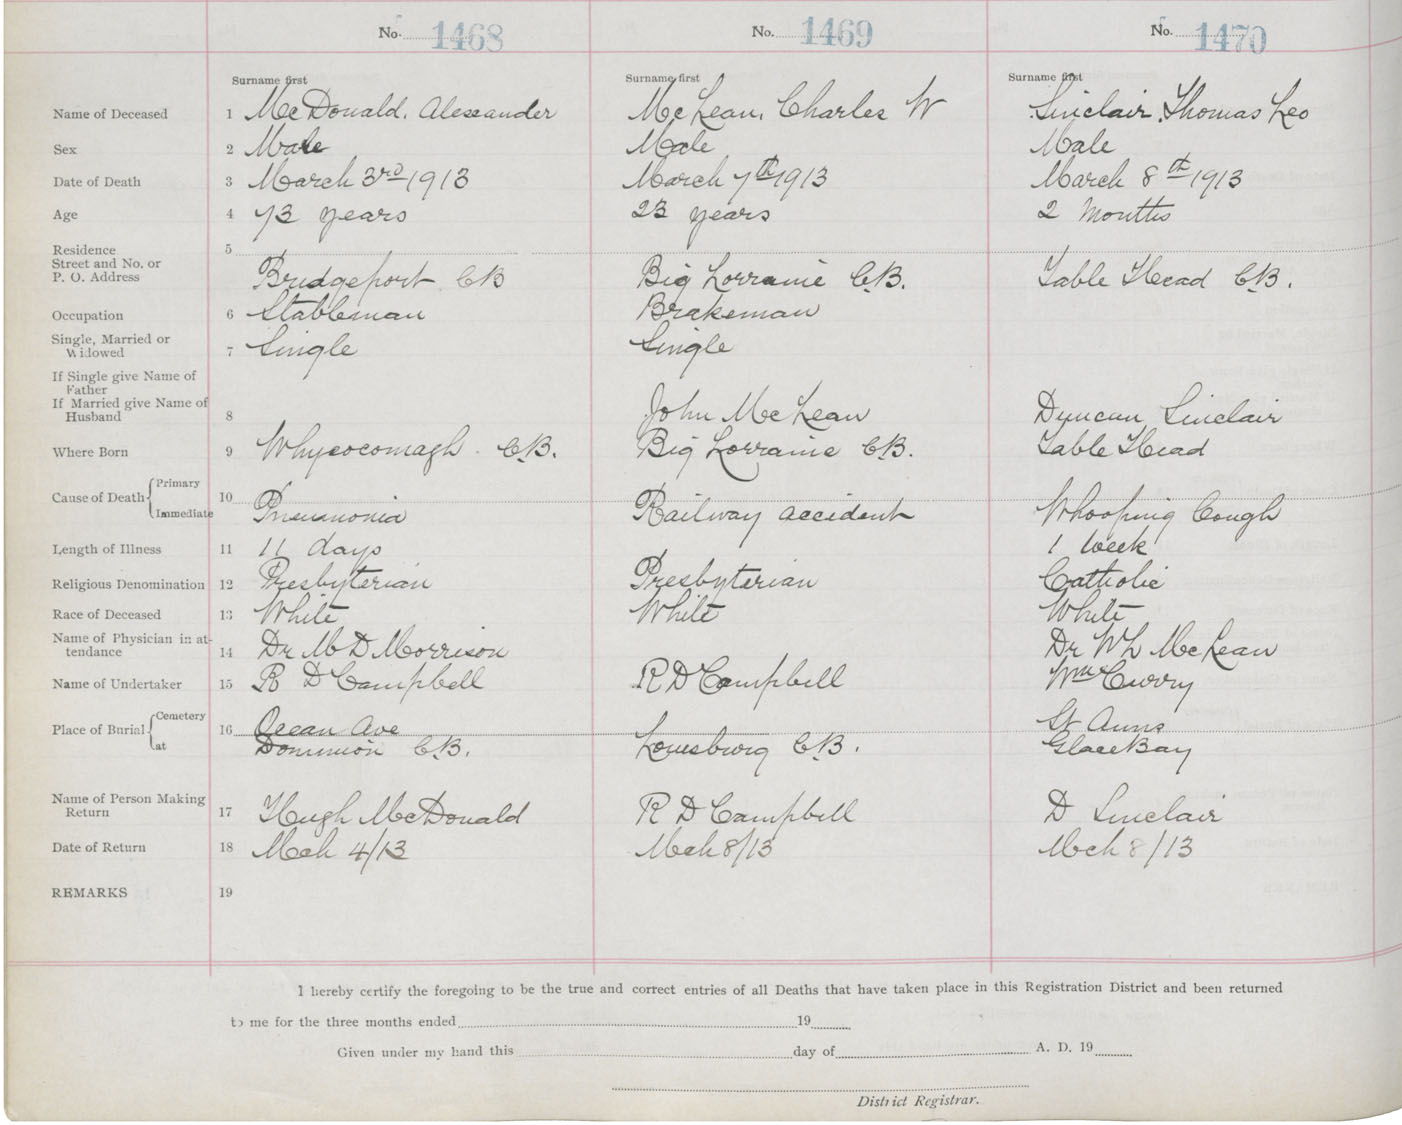 No. 1468 No. 1469 No. 1470
Surname first Surname first Surname first
Name of Deceased 1 McDonald, Alexander McLean, Charles W Sinclair, Thomas Leo
Sex 2 Male Male Male
Date of Death 3 March 3rd 1913 March 7th 1913 March 8th 1913
Age 4 73 years 23 years 2 Months
Residence 5
Street and No. or
P. O. Address Bridgeport CB Big Lorraine C.B. Table Head C.B.
Occupation 6 Stableman Brakeman
Single, Married or
Widowed 7 Single Single
If Single give Name of
Father
If Married give Name of
Husband 8 John McLean Duncan Sinclair
Where Born 9 Whycocomagh C.B. Big Lorraine C.B. Table Head
Cause of Death { Primary 10
Immediate Pneumonia Railway accident Whooping Cough
Length of Illness 11 11 days 1 week
Religious Denomination 12 Presbyterian Presbyterian Catholic
Race of Deceased 13 White White White
Name of Physician in at-
tendance 14 Dr M D Morrison Dr W L McLean
Name of Undertaker 15 R D Campbell R D Campbell Wm Curry
Place of Burial { Cemetery 16 Ocean Ave St Anns
at Dominion C.B. Louisburg C.B. Glace Bay
Name of Person Making
Return 17 Hugh McDonald R D Campbell D Sinclair
Date of Return 18 Mch 4/13 Mch 8/13 Mch 8/13
REMARKS 19
I hereby certify the foregoing to be the true and correct entries of all Deaths that have taken place in this Registration District and been returned
to me for the three months ended 19
Given under my hand this day of A. D. 19
District Registrar.